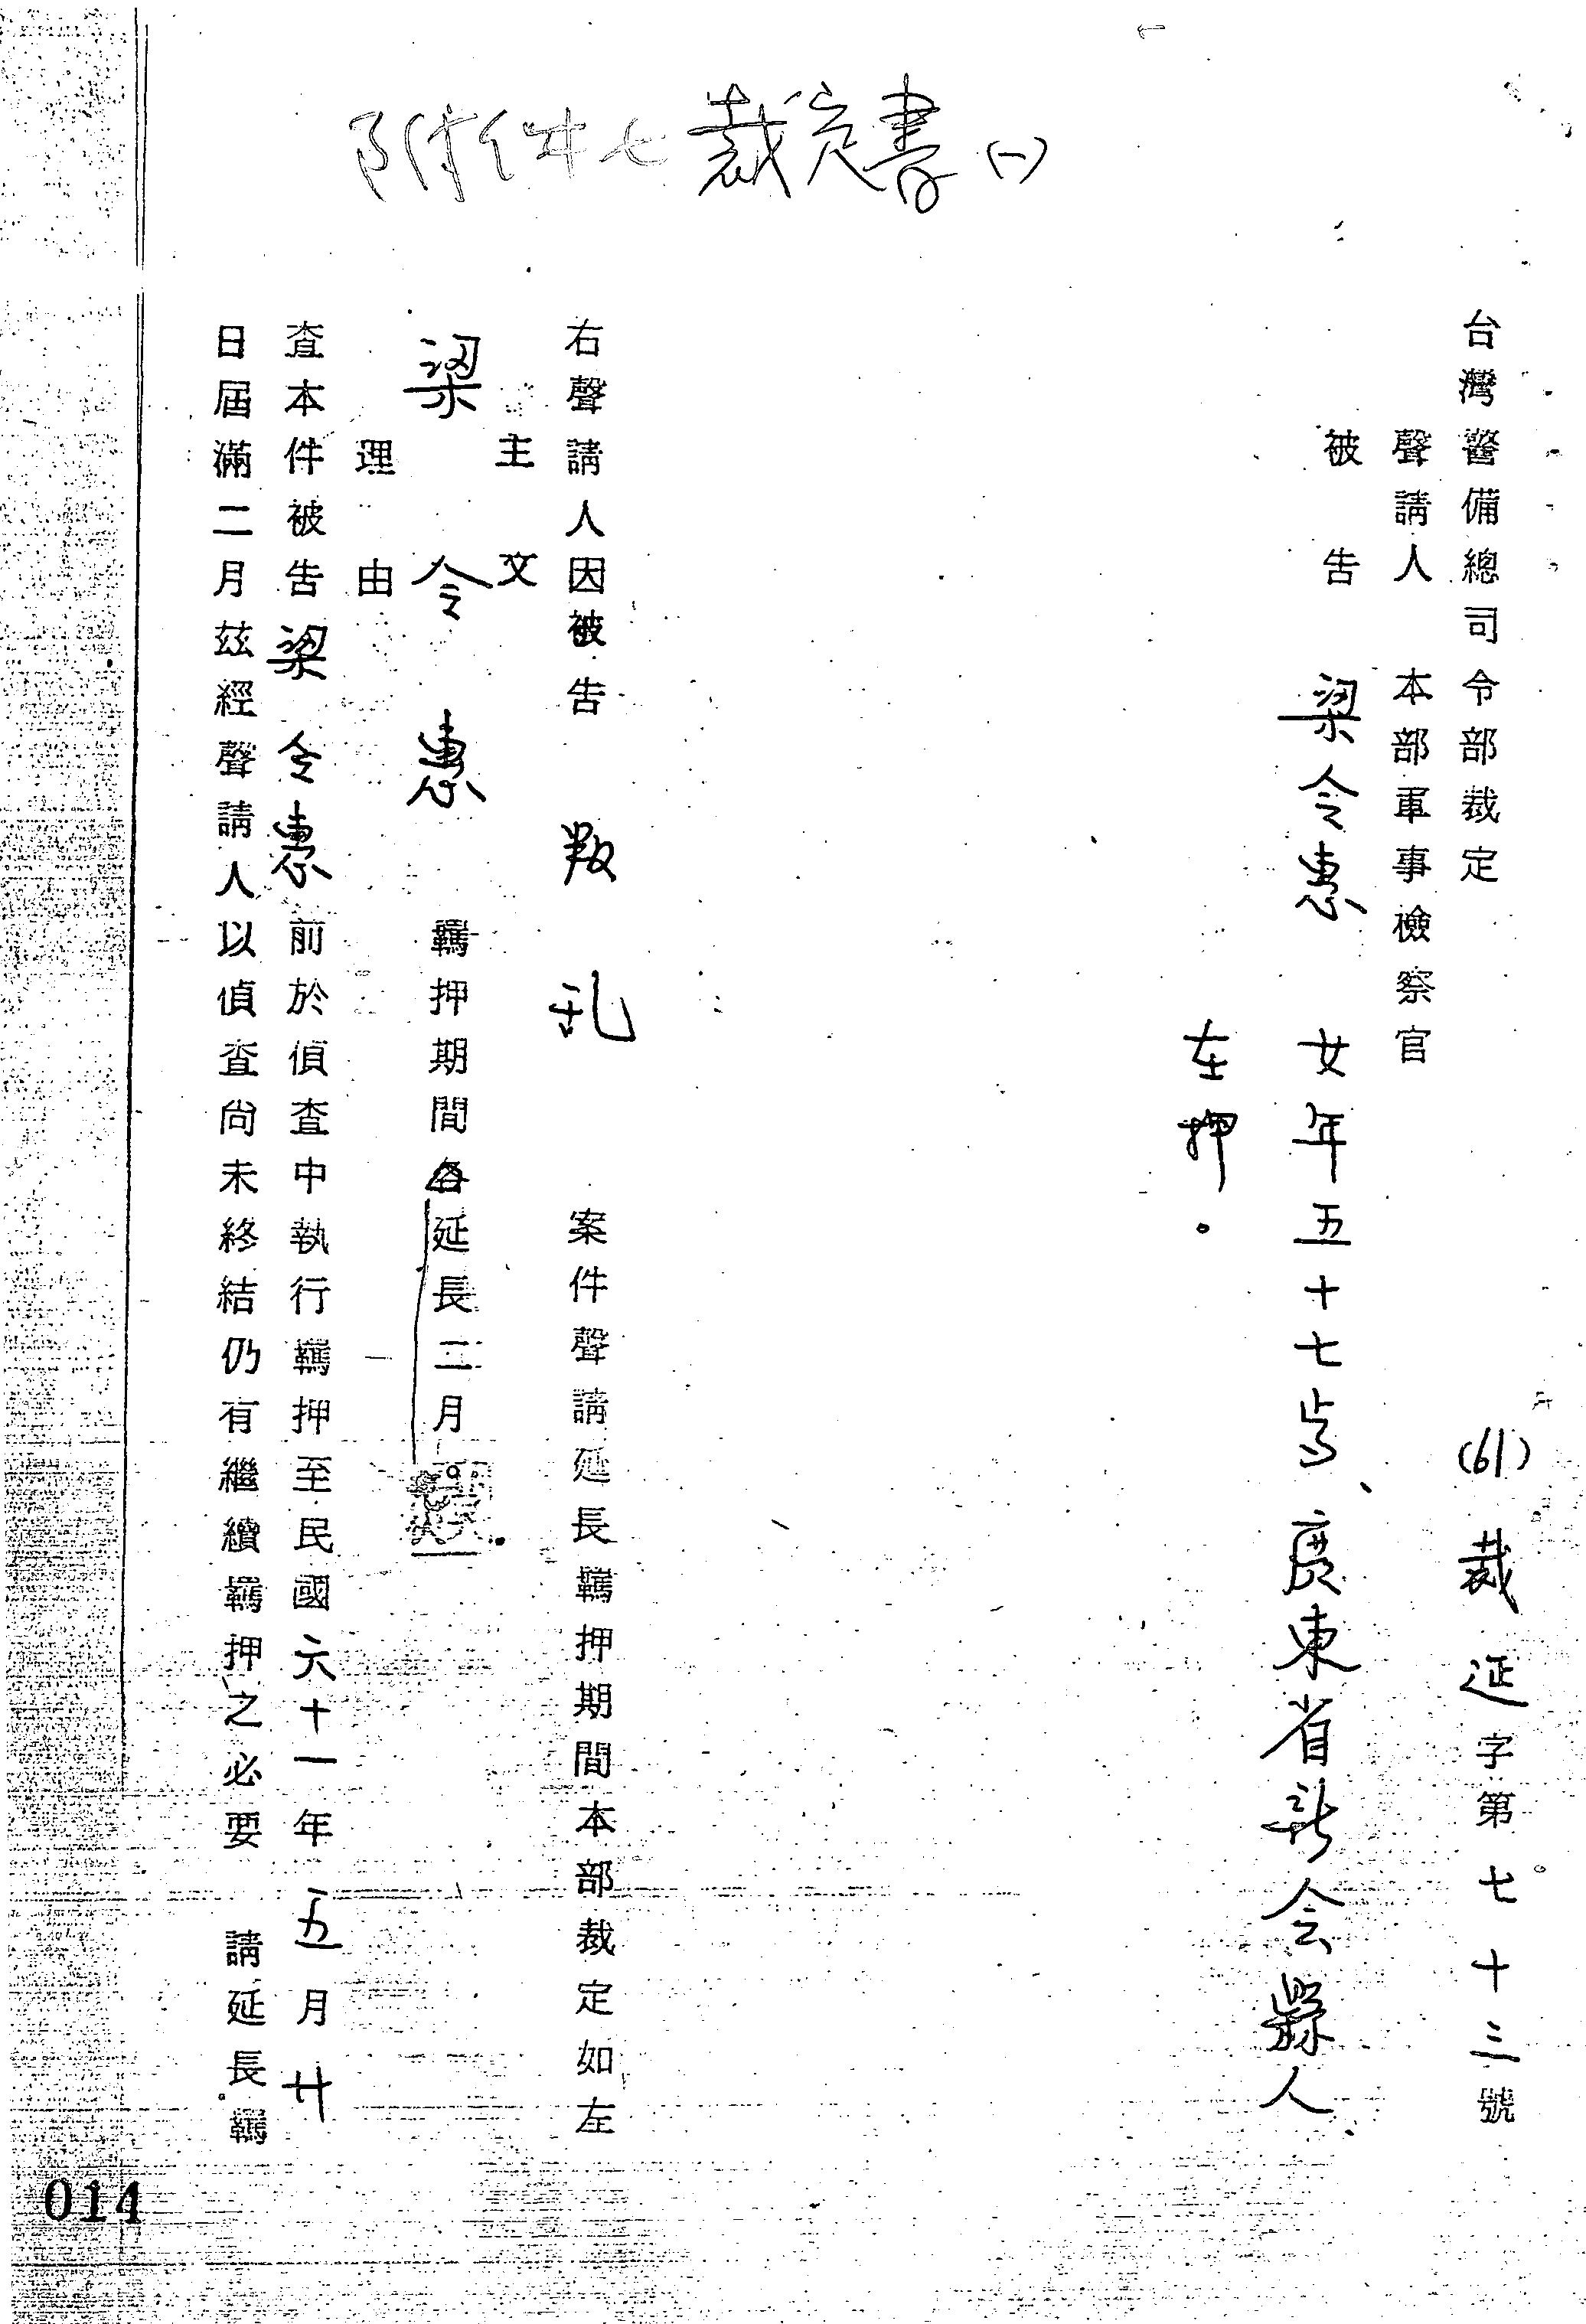 附件七 裁定書(一)
台灣警備總司令部裁定
(61)裁延字第七十三號
聲請人 本部軍事檢察官
被告 梁令惠 女年五十七歲、廣東省新会縣人、
在押。
右聲請人因被告 叛乱 案件聲請延長羈押期間本部裁定如左
主文
梁令惠 羈押期間各延長二月。
理由
查本件被告梁令惠前於偵查中執行羈押至民國六十一年五月廿
日屆滿二月茲經聲請人以偵查尚未終結仍有繼續羈押之必要 請延長羈
014